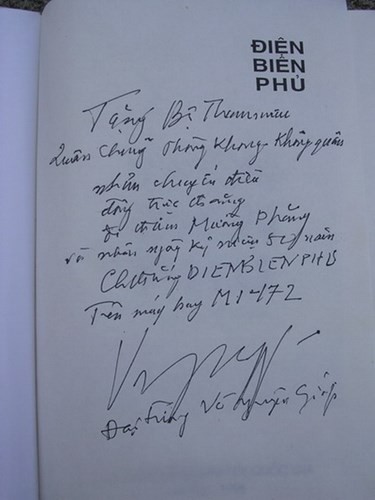 ĐIỆN
BIÊN
PHỦ
Tặng Bộ Tham mưu
Quân chủng Phòng Không - Không quân
nhân chuyến
đồng trực thăng
đi thăm Mường Phăng
và nhân ngày kỷ niệm 50 năm
Ch thắng DIENBIENPHU
Trên máy bay MI-172
Đại tướng Võ Nguyên Giáp